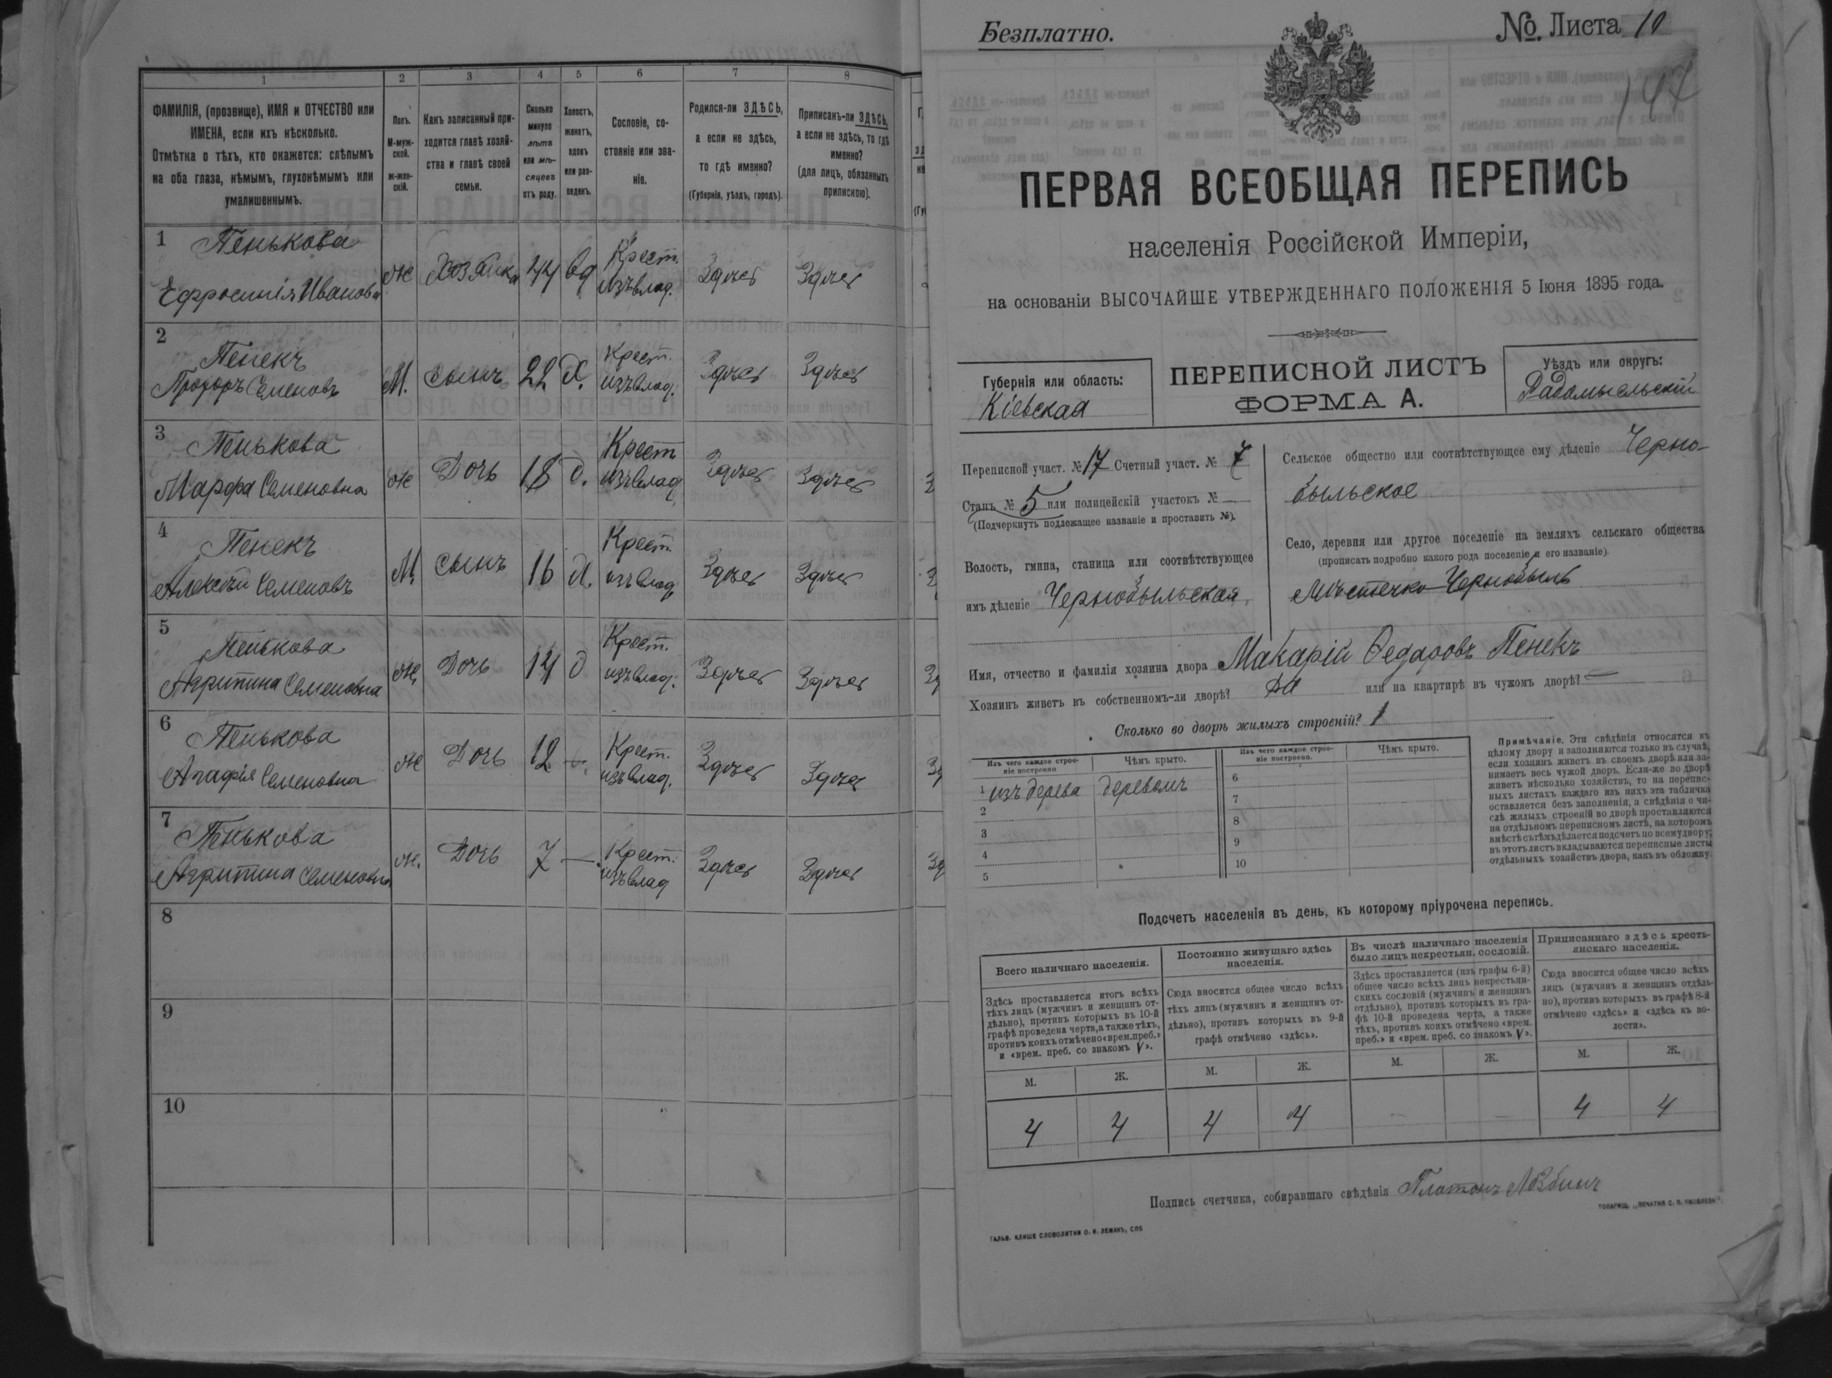 1
2
3
4
5
6
7
8
ФАМИЛІЯ, (прозвище), ИМЯ и ОТЧЕСТВО или
ИМЕНА, если ихъ нѣсколько.
Отмѣтка о тѣхъ, кто окажется: слѣпымъ
на оба глаза, нѣмымъ, глухонѣмымъ или
умалишеннымъ.
Полъ.
М-муж-
ской.
ж-жен-
скій.
Какъ записанный при-
ходится главѣ хозяй-
ства и главѣ своей
семьи.
Сколько
минуло
лѣтъ
или мѣ-
сяцевъ
отъ роду.
Холостъ,
женатъ,
вдовъ
или раз-
веденъ.
Сословіе, со-
стояніе или зва-
ніе.
Родился-ли ЗДѢСЬ,
а если не здѣсь,
то гдѣ именно?
(Губернія, уѣздъ, городъ).
Приписанъ-ли ЗДѢСЬ,
а если не здѣсь, то гдѣ
именно?
(для лицъ, обязанныхъ
припискою).
1 Пенькова
Ефросинія Иванова ж Хозяйка 44 вд Крест. изъ влад. Здѣсь Здѣсь
2
Пенекъ
Семеновъ М. сынъ 22 х. Крест. изъ влад. Здѣсь Здѣсь
3
Пенькова
Марфа Семеновна ж Дочь 18 д. Крест изъ влад. Здѣсь Здѣсь
4
Пенекъ
Алексѣй Семеновъ М. сынъ 16 х. Крест. изъ влад. Здѣсь Здѣсь
5
Пенькова
Агрипина Семеновна ж. Дочь 14 д Крест. изъ влад. Здѣсь Здѣсь
6
Пенькова
Агафія Семеновна ж Дочь 12 — Крест. изъ влад. Здѣсь Здѣсь
7
Пенькова
Агрипина Семеновна ж. Дочь 7 — Крест. изъ влад Здѣсь Здѣсь
8
9
10
Безплатно.
№ Листа 10
147
ПЕРВАЯ ВСЕОБЩАЯ ПЕРЕПИСЬ
населенія Россійской Имперіи,
на основаніи ВЫСОЧАЙШЕ УТВЕРЖДЕННАГО ПОЛОЖЕНІЯ 5 Іюня 1895 года.
Губернія или область:
Кіевская
ПЕРЕПИСНОЙ ЛИСТЪ
ФОРМА А.
Уѣздъ или округъ:
Радомысльскій
Переписной участ. № 17 Счетный участ. № 7
Станъ № 5 или полицейскій участокъ № —
(Подчеркнуть подлежащее названіе и проставить №).
Волость, гмина, станица или соотвѣтствующее
имъ дѣленіе Чернобыльская
Сельское общество или соотвѣтствующее ему дѣленіе Черно-
быльское
Село, деревня или другое поселеніе на земляхъ сельскаго общества
(прописать подробно какого рода поселеніе и его названіе)
мѣстечко Чернобыль
Имя, отчество и фамилія хозяина двора Макарій Федоровъ Пенекъ
Хозяинъ живетъ въ собственномъ-ли дворѣ? Да или на квартирѣ въ чужомъ дворѣ? —
Сколько во дворѣ жилыхъ строеній? 1
Изъ чего каждое строе-
ніе построено
Чѣмъ крыто.
Изъ чего каждое строе-
ніе построено.
Чѣмъ крыто.
1 изъ дерева деревомъ
2
3
4
5
6
7
8
9
10
Примѣчаніе. Эти свѣдѣнія относятся къ
цѣлому двору и заполняются только въ случаѣ,
если хозяинъ живетъ въ своемъ дворѣ или за-
нимаетъ весь чужой дворъ. Если-же во дворѣ
живетъ нѣсколько хозяйствъ, то на перепис-
ныхъ листахъ каждаго изъ нихъ эта табличка
оставляется безъ заполненія, а свѣдѣнія о чи-
слѣ жилыхъ строеній во дворѣ проставляются
на отдѣльномъ переписномъ листѣ, на которомъ
вмѣстѣ съ тѣмъ дѣлается подсчетъ по всему двору;
въ этотъ листъ вкладываются переписные листы
отдѣльныхъ хозяйствъ двора, какъ въ обложку.
Подсчетъ населенія въ день, къ которому пріурочена перепись.
Всего наличнаго населенія.
Здѣсь проставляется итогъ всѣхъ
тѣхъ лицъ (мужчинъ и женщинъ от-
дѣльно), противъ которыхъ въ 10-й
графѣ проведена черта, а также тѣхъ,
противъ коихъ отмѣчено «врем. преб.»
и «врем. преб. со знакомъ V».
Постоянно живущаго здѣсь
населенія.
Сюда вносится общее число всѣхъ
тѣхъ лицъ (мужчинъ и женщинъ от-
дѣльно), противъ которыхъ въ 9-й
графѣ отмѣчено «здѣсь».
Въ числѣ наличнаго населенія
было лицъ некрестьян. сословій.
Здѣсь проставляется (изъ графы 6-й)
общее число всѣхъ лицъ некрестьян-
скихъ сословій (мужчинъ и женщинъ
отдѣльно), противъ которыхъ въ гра-
фѣ 10-й проведена черта, а также
тѣхъ, противъ коихъ отмѣчено «врем.
преб.» и «врем. преб. со знакомъ V».
Приписаннаго здѣсь кресть-
янскаго населенія.
Сюда вносится общее число всѣхъ
лицъ (мужчинъ и женщинъ отдѣль-
но), противъ которыхъ въ графѣ 8-й
отмѣчено «здѣсь» и «здѣсь въ во-
лости».
М. Ж. М. Ж. М. Ж. М. Ж.
4 4 4 4 - - 4 4
Подпись счетчика, собиравшаго свѣдѣнія Платонъ
ГАЛЬВ. КЛИШЕ СЛОВОЛИТНИ О. И. ЛЕМАНЪ, СПБ
ТОВАРИЩ. „ПЕЧАТНЯ С. П. ЯКОВЛЕВА“.